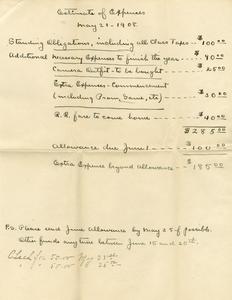 Estimate of Expenses
May 21 - 1908
Standing Obligations, including all Class Taxes - $100.00
Additional necessary Expenses to finish the year - $40.00
Camera Outfit - to be bought - $25.00
Extra Expenses - Commencement
(including Prom, Game, etc) - $80.00
R.R. fare to come home - $40.00
$285.00
Allowance due June 1 - $100.00
Extra Expense beyond Allowance - $185.00
P.S. Please send June Allowance by May 25 if possible.
Other funds any time between June 15 and 20th.
Check for 50.00 May 23rd
" " 50.00 " 28th